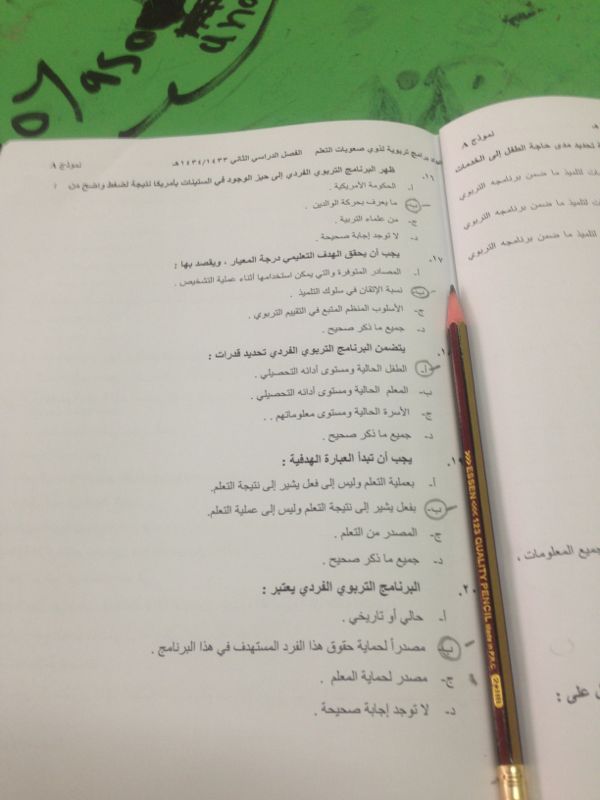 نموذج A
الفصل الدراسي الثاني ١٤٣٤/١٤٣٣هـ
برامج تربوية لذوي صعوبات التعلم
١٦. ظهر البرنامج التربوي الفردي إلى حيز الوجود في الستينات بأمريكا نتيجة لضغط واضح من :
أ- الحكومة الأمريكية .
ب- ما يعرف بحركة الوالدين .
ج- من علماء التربية .
د- لا توجد إجابة صحيحة .
١٧. يجب أن يحقق الهدف التعليمي درجة المعيار ، ويقصد بها :
أ- المصادر المتوفرة والتي يمكن استخدامها أثناء عملية التشخيص .
ب- نسبة الإتقان في سلوك التلميذ .
ج- الأسلوب المنظم المتبع في التقييم التربوي .
د- جميع ما ذكر صحيح .
يتضمن البرنامج التربوي الفردي تحديد قدرات :
أ- الطفل الحالية ومستوى أدائه التحصيلي .
ب- المعلم الحالية ومستوى أدائه التحصيلي .
ج- الأسرة الحالية ومستوى معلوماتهم . .
د- جميع ما ذكر صحيح .
يجب أن تبدأ العبارة الهدفية :
أ- بعملية التعلم وليس إلى فعل يشير إلى نتيجة التعلم.
ب- بفعل يشير إلى نتيجة التعلم وليس إلى عملية التعلم.
ج- المصدر من التعلم .
د- جميع ما ذكر صحيح .
٢٠. البرنامج التربوي الفردي يعتبر :
أ- حالي أو تاريخي .
ب- مصدراً لحماية حقوق هذا الفرد المستهدف في هذا البرنامج .
ج- مصدر لحماية المعلم .
د- لا توجد إجابة صحيحة .
نموذج A
تحديد مدى حاجة الطفل إلى الخدمات
تلميذ ما ضمن برنامجه التربوي
تلميذ ما ضمن برنامجه التربوي
تلميذ ما ضمن برنامجه التربوي
جميع المعلومات ،
على :
>>>ESSEN<<< 123 QUALITY PENCIL